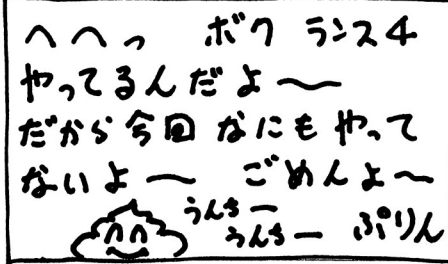 へへっ ボク ランス4
やってるんだよ〜
だから今回なにもやって
ないよ〜 ごめんよ〜
うんちー
うんちー ぷりん